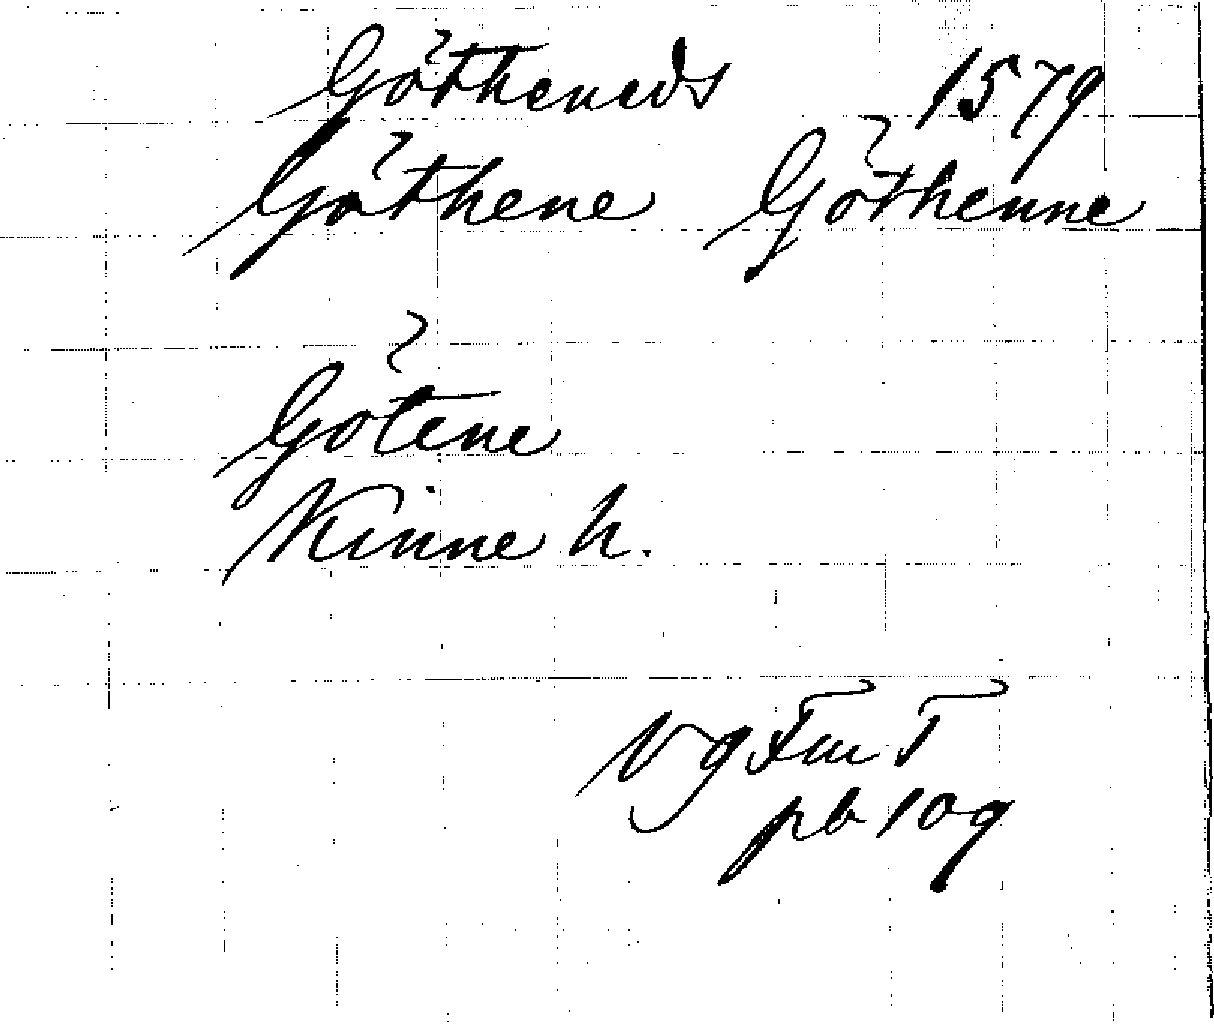 Götheneds 1579
Göthene Göthenne
Götene
Kinne h.
Vg Fm T
pb 109